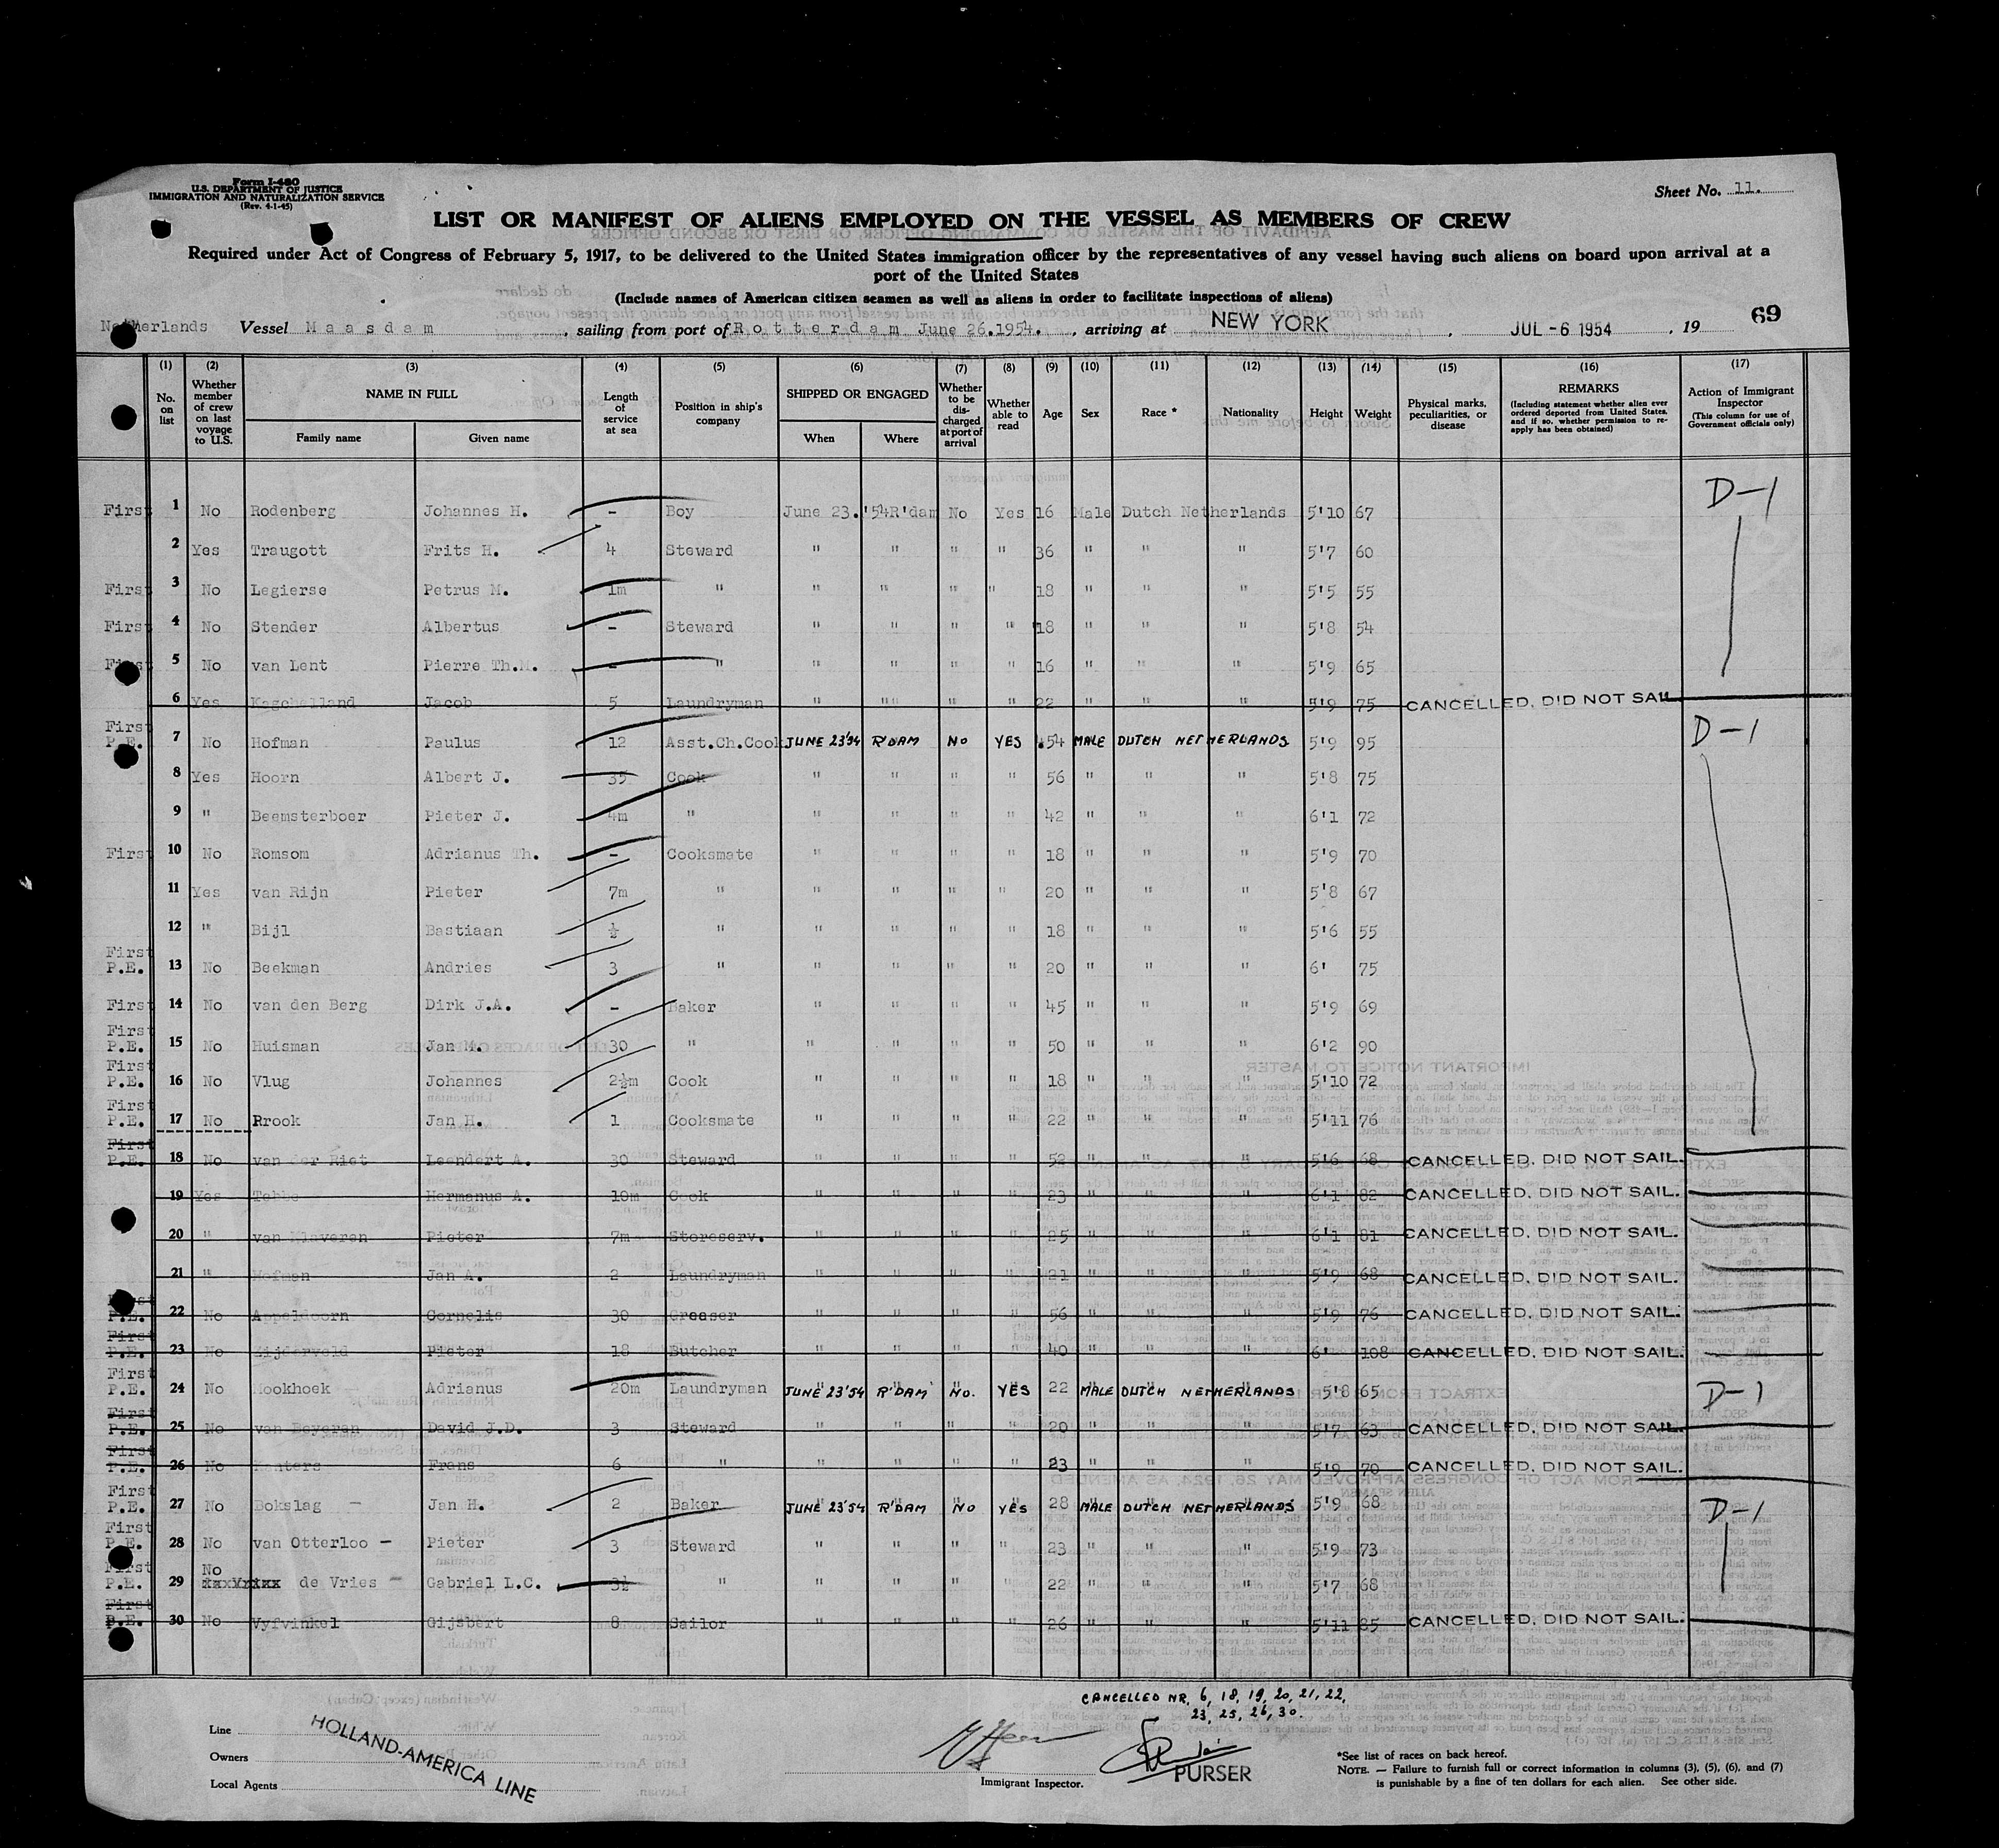 Form I-480
U.S. DEPARTMENT OF JUSTICE
IMMIGRATION AND NATURALIZATION SERVICE
(Rev. 4-1-45)
Sheet No. 11.
LIST OR MANIFEST OF ALIENS EMPLOYED ON THE VESSEL AS MEMBERS OF CREW
Required under Act of Congress of February 5, 1917, to be delivered to the United States immigration officer by the representatives of any vessel having such aliens on board upon arrival at a
port of the United States
(Include names of American citizen seamen as well as aliens in order to facilitate inspections of aliens)
Netherlands Vessel Maasdam, sailing from port of Rotterdam June 26.1954., arriving at NEW YORK, JUL -6 1954, 19 69
(1) (2) (3) (4) (5) (6) (7) (8) (9) (10) (11) (12) (13) (14) (15) (16) (17)
No. on list
Whether member of crew on last voyage to U.S.
NAME IN FULL
Family name Given name
Length of service at sea
Position in ship's company
SHIPPED OR ENGAGED
When Where
Whether to be discharged at port of arrival
Whether able to read
Age Sex Race * Nationality Height Weight
Physical marks, peculiarities, or disease
REMARKS
(Including statement whether alien ever ordered deported from United States, and if so, whether permission to reapply has been obtained)
Action of Immigrant Inspector
(This column for use of Government officials only)
First 1 No Rodenberg Johannes H. - Boy June 23.'54 R'dam No Yes 16 Male Dutch Netherlands 5'10 67 D-1
2 Yes Traugott Frits H. 4 Steward " " " " 36 " " " 5'7 60
First 3 No Legierse Petrus M. 1m " " " " " 18 " " " 5'5 55
First 4 No Stender Albertus - Steward " " " " 18 " " " 5'8 54
First 5 No van Lent Pierre Th.M. - " " " " " 16 " " " 5'9 65
6 Yes Jacob 5 Laundryman " " " " 22 " " " 5'9 75 CANCELLED, DID NOT SAIL
First P.E. 7 No Hofman Paulus 12 Asst.Ch.Cook JUNE 23'54 R'DAM NO YES 54 MALE DUTCH NETHERLANDS 5'9 95 D-1
8 Yes Hoorn Albert J. 35 Cook " " " " 56 " " " 5'8 75
9 " Beemsterboer Pieter J. 4m " " " " " 42 " " " 6'1 72
First 10 No Romsom Adrianus Th. - Cooksmate " " " " 18 " " " 5'9 70
11 Yes van Rijn Pieter 7m " " " " " 20 " " " 5'8 67
12 " Bijl Bastiaan ½ " " " " " 18 " " " 5'6 55
First P.E. 13 No Beekman Andries 3 " " " " " 20 " " " 6' 75
First 14 No van den Berg Dirk J.A. - Baker " " " " 45 " " " 5'9 69
First P.E. 15 No Huisman Jan M. 30 " " " " " 50 " " " 6'2 90
First P.E. 16 No Vlug Johannes 2½m Cook " " " " 18 " " " 5'10 72
First P.E. 17 No Rrook Jan H. 1 Cooksmate " " " " 22 " " " 5'11 76
First P.E. 18 No van der Riet Leendert A. 30 Steward " " " " 52 " " " 5'6 68 CANCELLED, DID NOT SAIL.
19 Yes Hermanus A. 10m Cook " " " " 23 " " " 6'1 82 CANCELLED, DID NOT SAIL.
20 " van Klaveren Pieter 7m Storeserv. " " " " 25 " " " 6'1 81 CANCELLED, DID NOT SAIL.
21 " Hofman Jan A. 2 Laundryman " " " " 21 " " " 5'9 68 CANCELLED, DID NOT SAIL.
First P.E. 22 No Appeldoorn Cornelis 30 Greaser " " " " 56 " " " 5'9 76 CANCELLED, DID NOT SAIL.
First P.E. 23 No Zijderveld Pieter 18 Butcher " " " " 40 " " " 6' 108 CANCELLED, DID NOT SAIL.
First P.E. 24 No Adrianus 20m Laundryman JUNE 23'54 R'DAM NO. YES 22 MALE DUTCH NETHERLANDS 5'8 65 D-1
First P.E. 25 No van Beyeren David J.D. 3 Steward " " " " 20 " " " 5'7 63 CANCELLED, DID NOT SAIL.
First P.E. 26 No Frans 6 " " " " " 23 " " " 5'9 70 CANCELLED, DID NOT SAIL.
First P.E. 27 No Bokslag - Jan H. 2 Baker JUNE 23'54 R'DAM NO YES 28 MALE DUTCH NETHERLANDS 5'9 68 D-1
First P.E. 28 No van Otterloo - Pieter 3 Steward " " " " 23 " " " 5'9 73
First P.E. 29 No de Vries - Gabriel L.C. 3½ " " " " " 22 " " " 5'7 68
First P.E. 30 No Vyfvinkel Gijsbert 8 Sailor " " " " 26 " " " 5'11 85 CANCELLED, DID NOT SAIL.
CANCELLED NR. 6, 18, 19, 20, 21, 22,
23, 25, 26, 30.
Line
Owners
Local Agents
HOLLAND-AMERICA LINE
Immigrant Inspector.
PURSER
*See list of races on back hereof.
NOTE. — Failure to furnish full or correct information in columns (3), (5), (6), and (7)
is punishable by a fine of ten dollars for each alien. See other side.